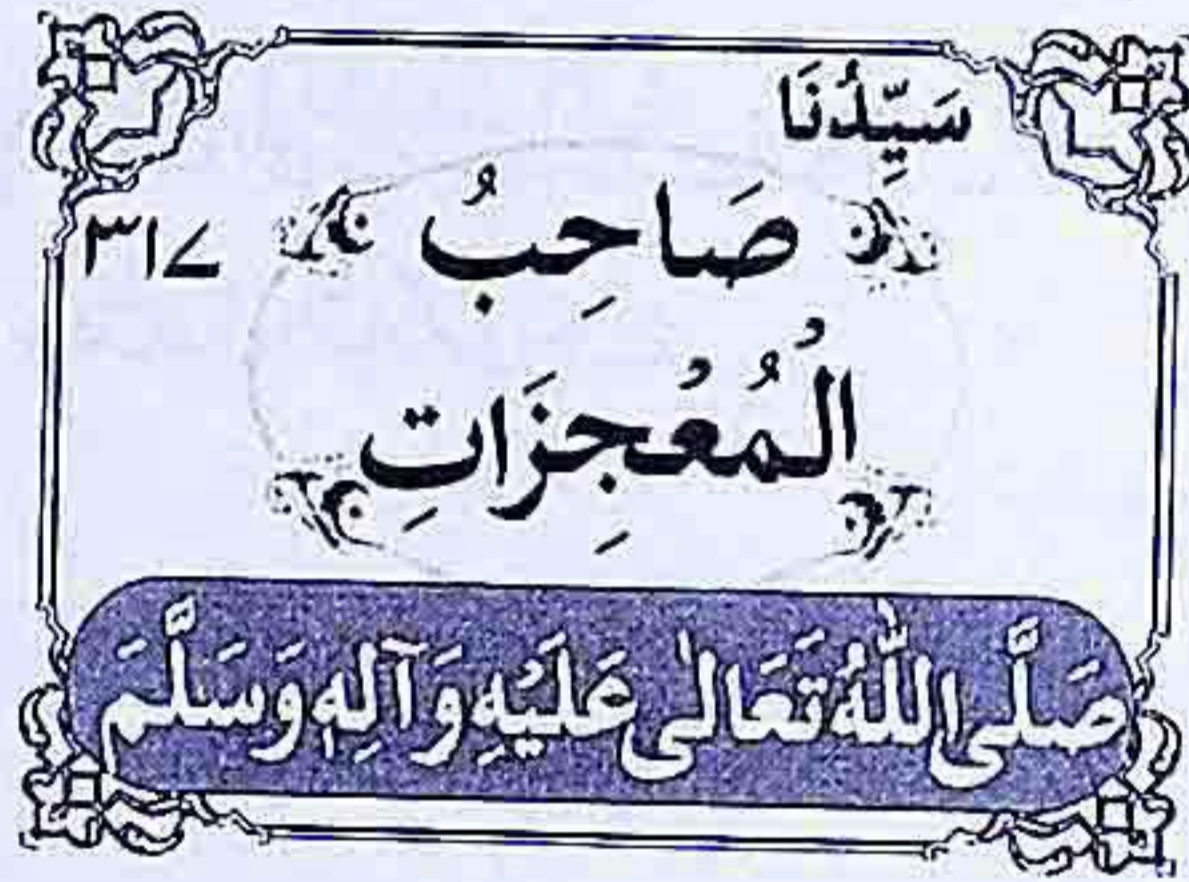 سَيِّدُنَا
صَاحِبُ ۳۱۷
الْمُعْجِزَاتِ
صَلَّى اللّٰهُ تَعَالٰى عَلَيْهِ وَآلِهٖ وَسَلَّمَ